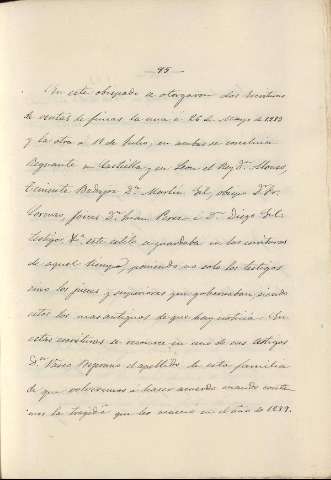 - 95 -
En este obispado se otorgaron dos escrituras
de ventas de fincas la una a 26 de Mayo de 1283
y la otra a 19 de Julio, en ambas se
Reynante en Castilla y en Leon el Rey Dn. Alonso,
Teniente Badajoz Dn. Martin Gil, obispo Dn.
Lorenzo, jueces Dn. Juan Perez i Dn. Diego Gil
testigos &a. este estilo se guardaba en las escrituras
de aquel tiempo, poniendo no solo los testigos
sino los jueces y superiores que gobernaban, siendo
estos los mas antiguos de que hay noticia. En
estas escrituras se reconoce en uno de sus testigos
Dn. Vasco Bejarano el apellido de esta familia
de que volveremos a hacer acuerdo cuando conte
mos la tragedia que les acaeció en el año de 1289.